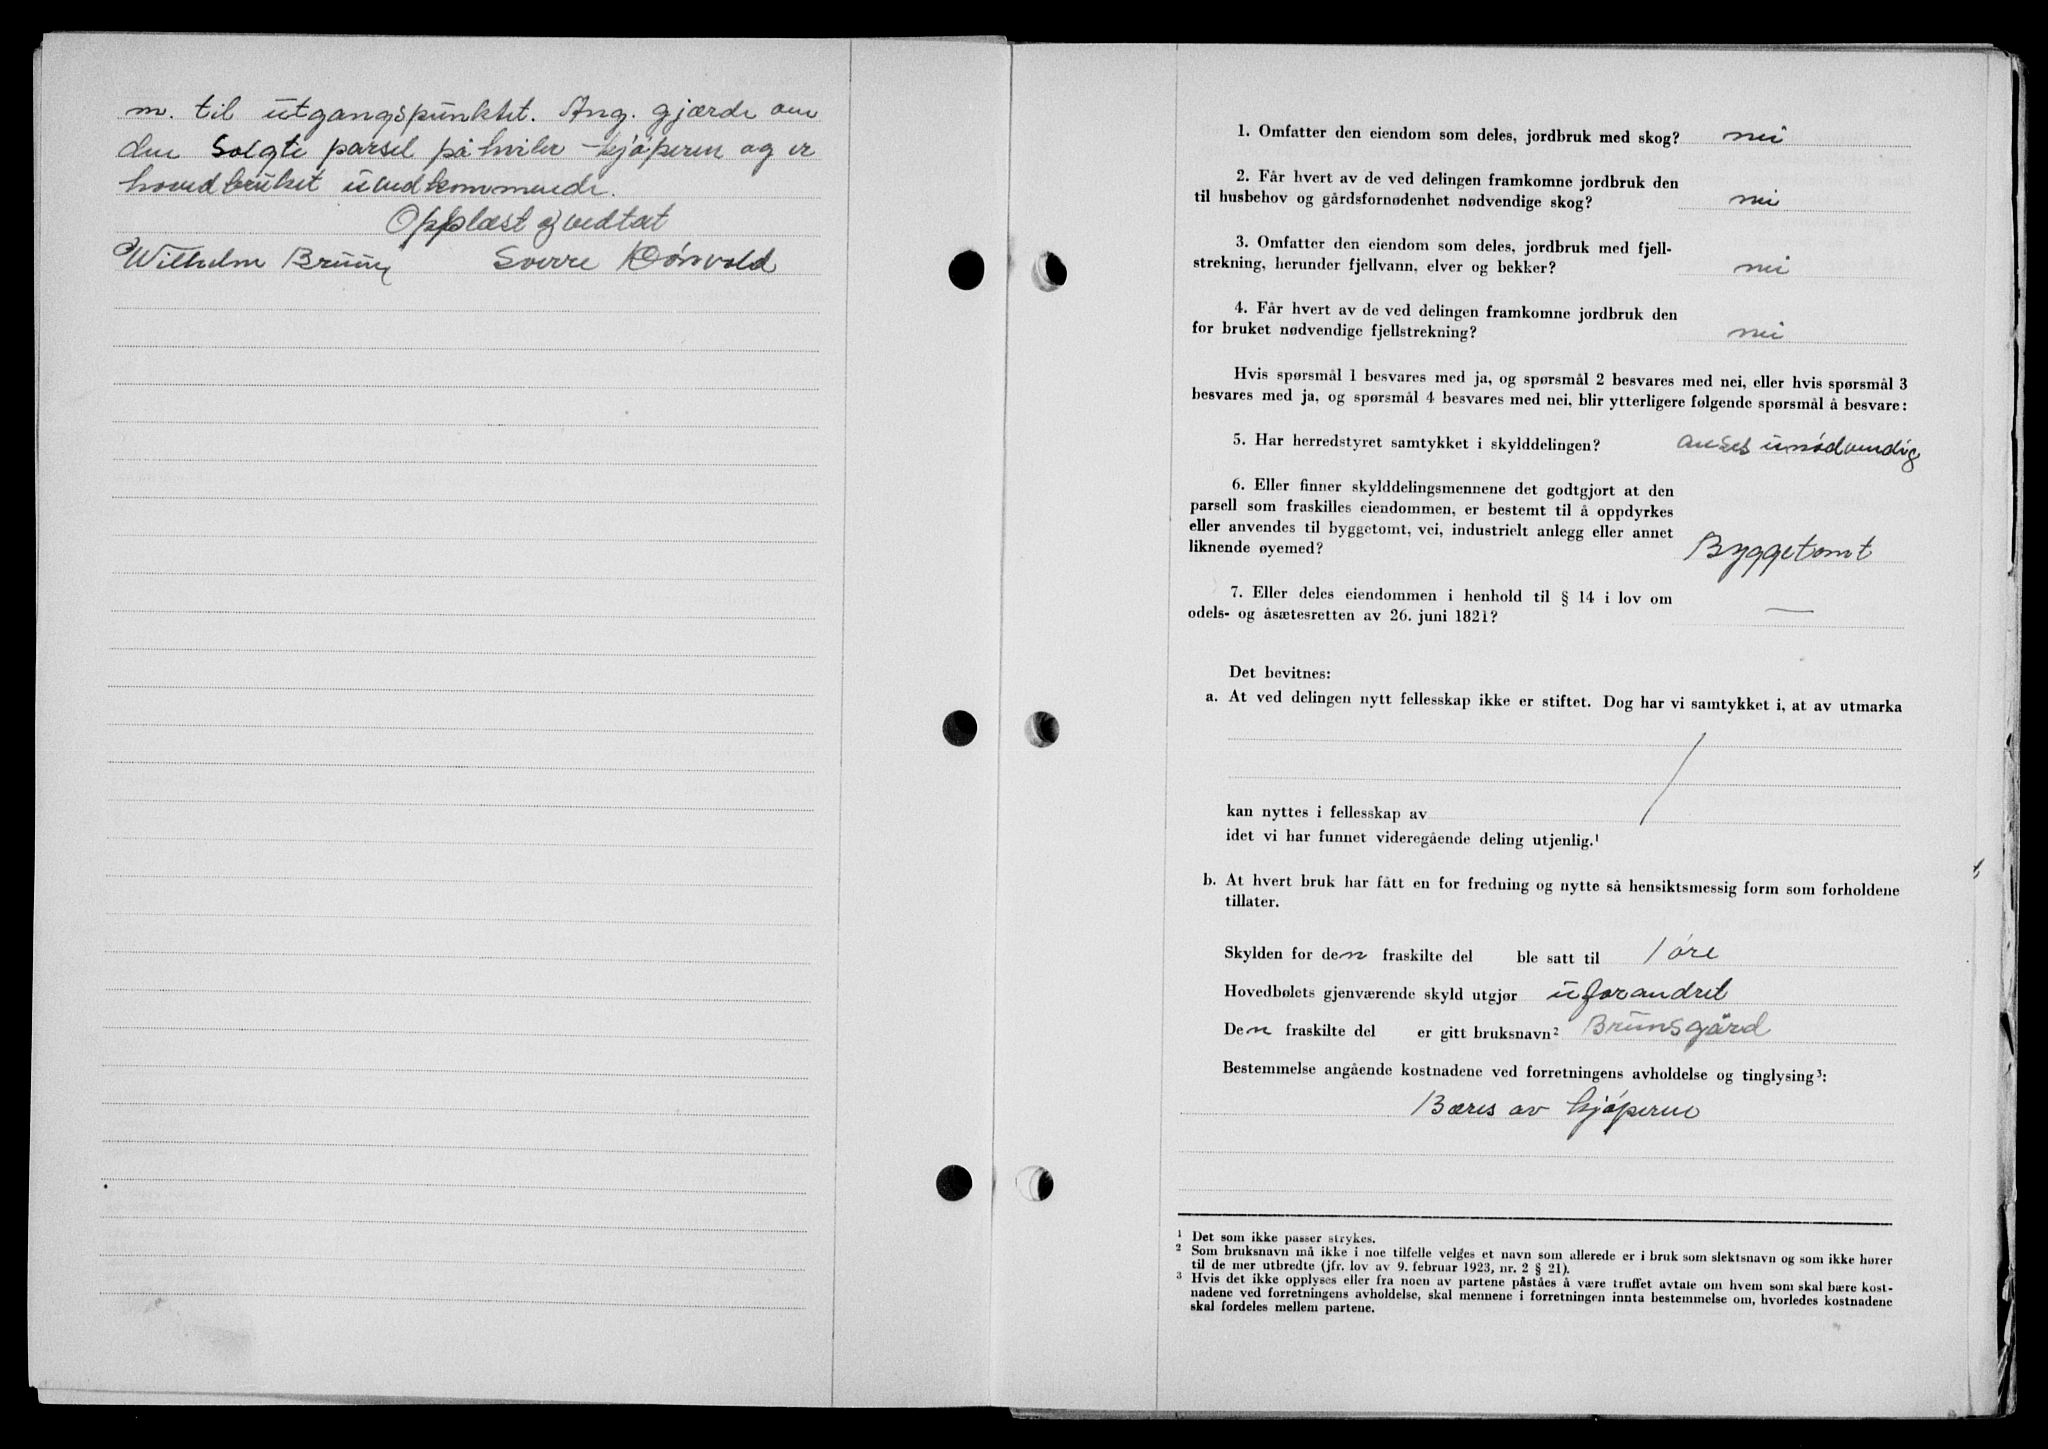 m. til utgangspunktet. Ang. gjærde om
den Solgte parsel påhviler kjøperen og er
hovedbruket uvedkommende.
Opplæst og vedtat
Wilhelm Bruun Sverre
1. Omfatter den eiendom som deles, jordbruk med skog? nei
2. Får hvert av de ved delingen framkomne jordbruk den
til husbehov og gårdsfornødenhet nødvendige skog? nei
3. Omfatter den eiendom som deles, jordbruk med fjell-
strekning, herunder fjellvann, elver og bekker? nei
4. Får hvert av de ved delingen framkomne jordbruk den
for bruket nødvendige fjellstrekning? nei
Hvis spørsmål 1 besvares med ja, og spørsmål 2 besvares med nei, eller hvis spørsmål 3
besvares med ja, og spørsmål 4 besvares med nei, blir ytterligere følgende spørsmål å besvare:
5. Har herredstyret samtykket i skylddelingen? anses unødvendig
6. Eller finner skylddelingsmennene det godtgjort at den
parsell som fraskilles eiendommen, er bestemt til å oppdyrkes
eller anvendes til byggetomt, vei, industrielt anlegg eller annet
liknende øyemed? Byggetomt
7. Eller deles eiendommen i henhold til § 14 i lov om
odels- og åsætesretten av 26. juni 1821? —
Det bevitnes:
a. At ved delingen nytt fellesskap ikke er stiftet. Dog har vi samtykket i, at av utmarka
kan nyttes i fellesskap av
idet vi har funnet videregående deling utjenlig.¹
b. At hvert bruk har fått en for fredning og nytte så hensiktsmessig form som forholdene
tillater.
Skylden for den fraskilte del ble satt til 1 øre
Hovedbølets gjenværende skyld utgjør uforandret
Den fraskilte del er gitt bruksnavn² Brunsgård
Bestemmelse angående kostnadene ved forretningens avholdelse og tinglysing³:
Bæres av kjøperen
¹ Det som ikke passer strykes.
² Som bruksnavn må ikke i noe tilfelle velges et navn som allerede er i bruk som slektsnavn og som ikke hører
til de mer utbredte (jfr. lov av 9. februar 1923, nr. 2 § 21).
³ Hvis det ikke opplyses eller fra noen av partene påståes å være truffet avtale om hvem som skal bære kost-
nadene ved forretningens avholdelse, skal mennene i forretningen innta bestemmelse om, hvorledes kostnadene
skal fordeles mellem partene.